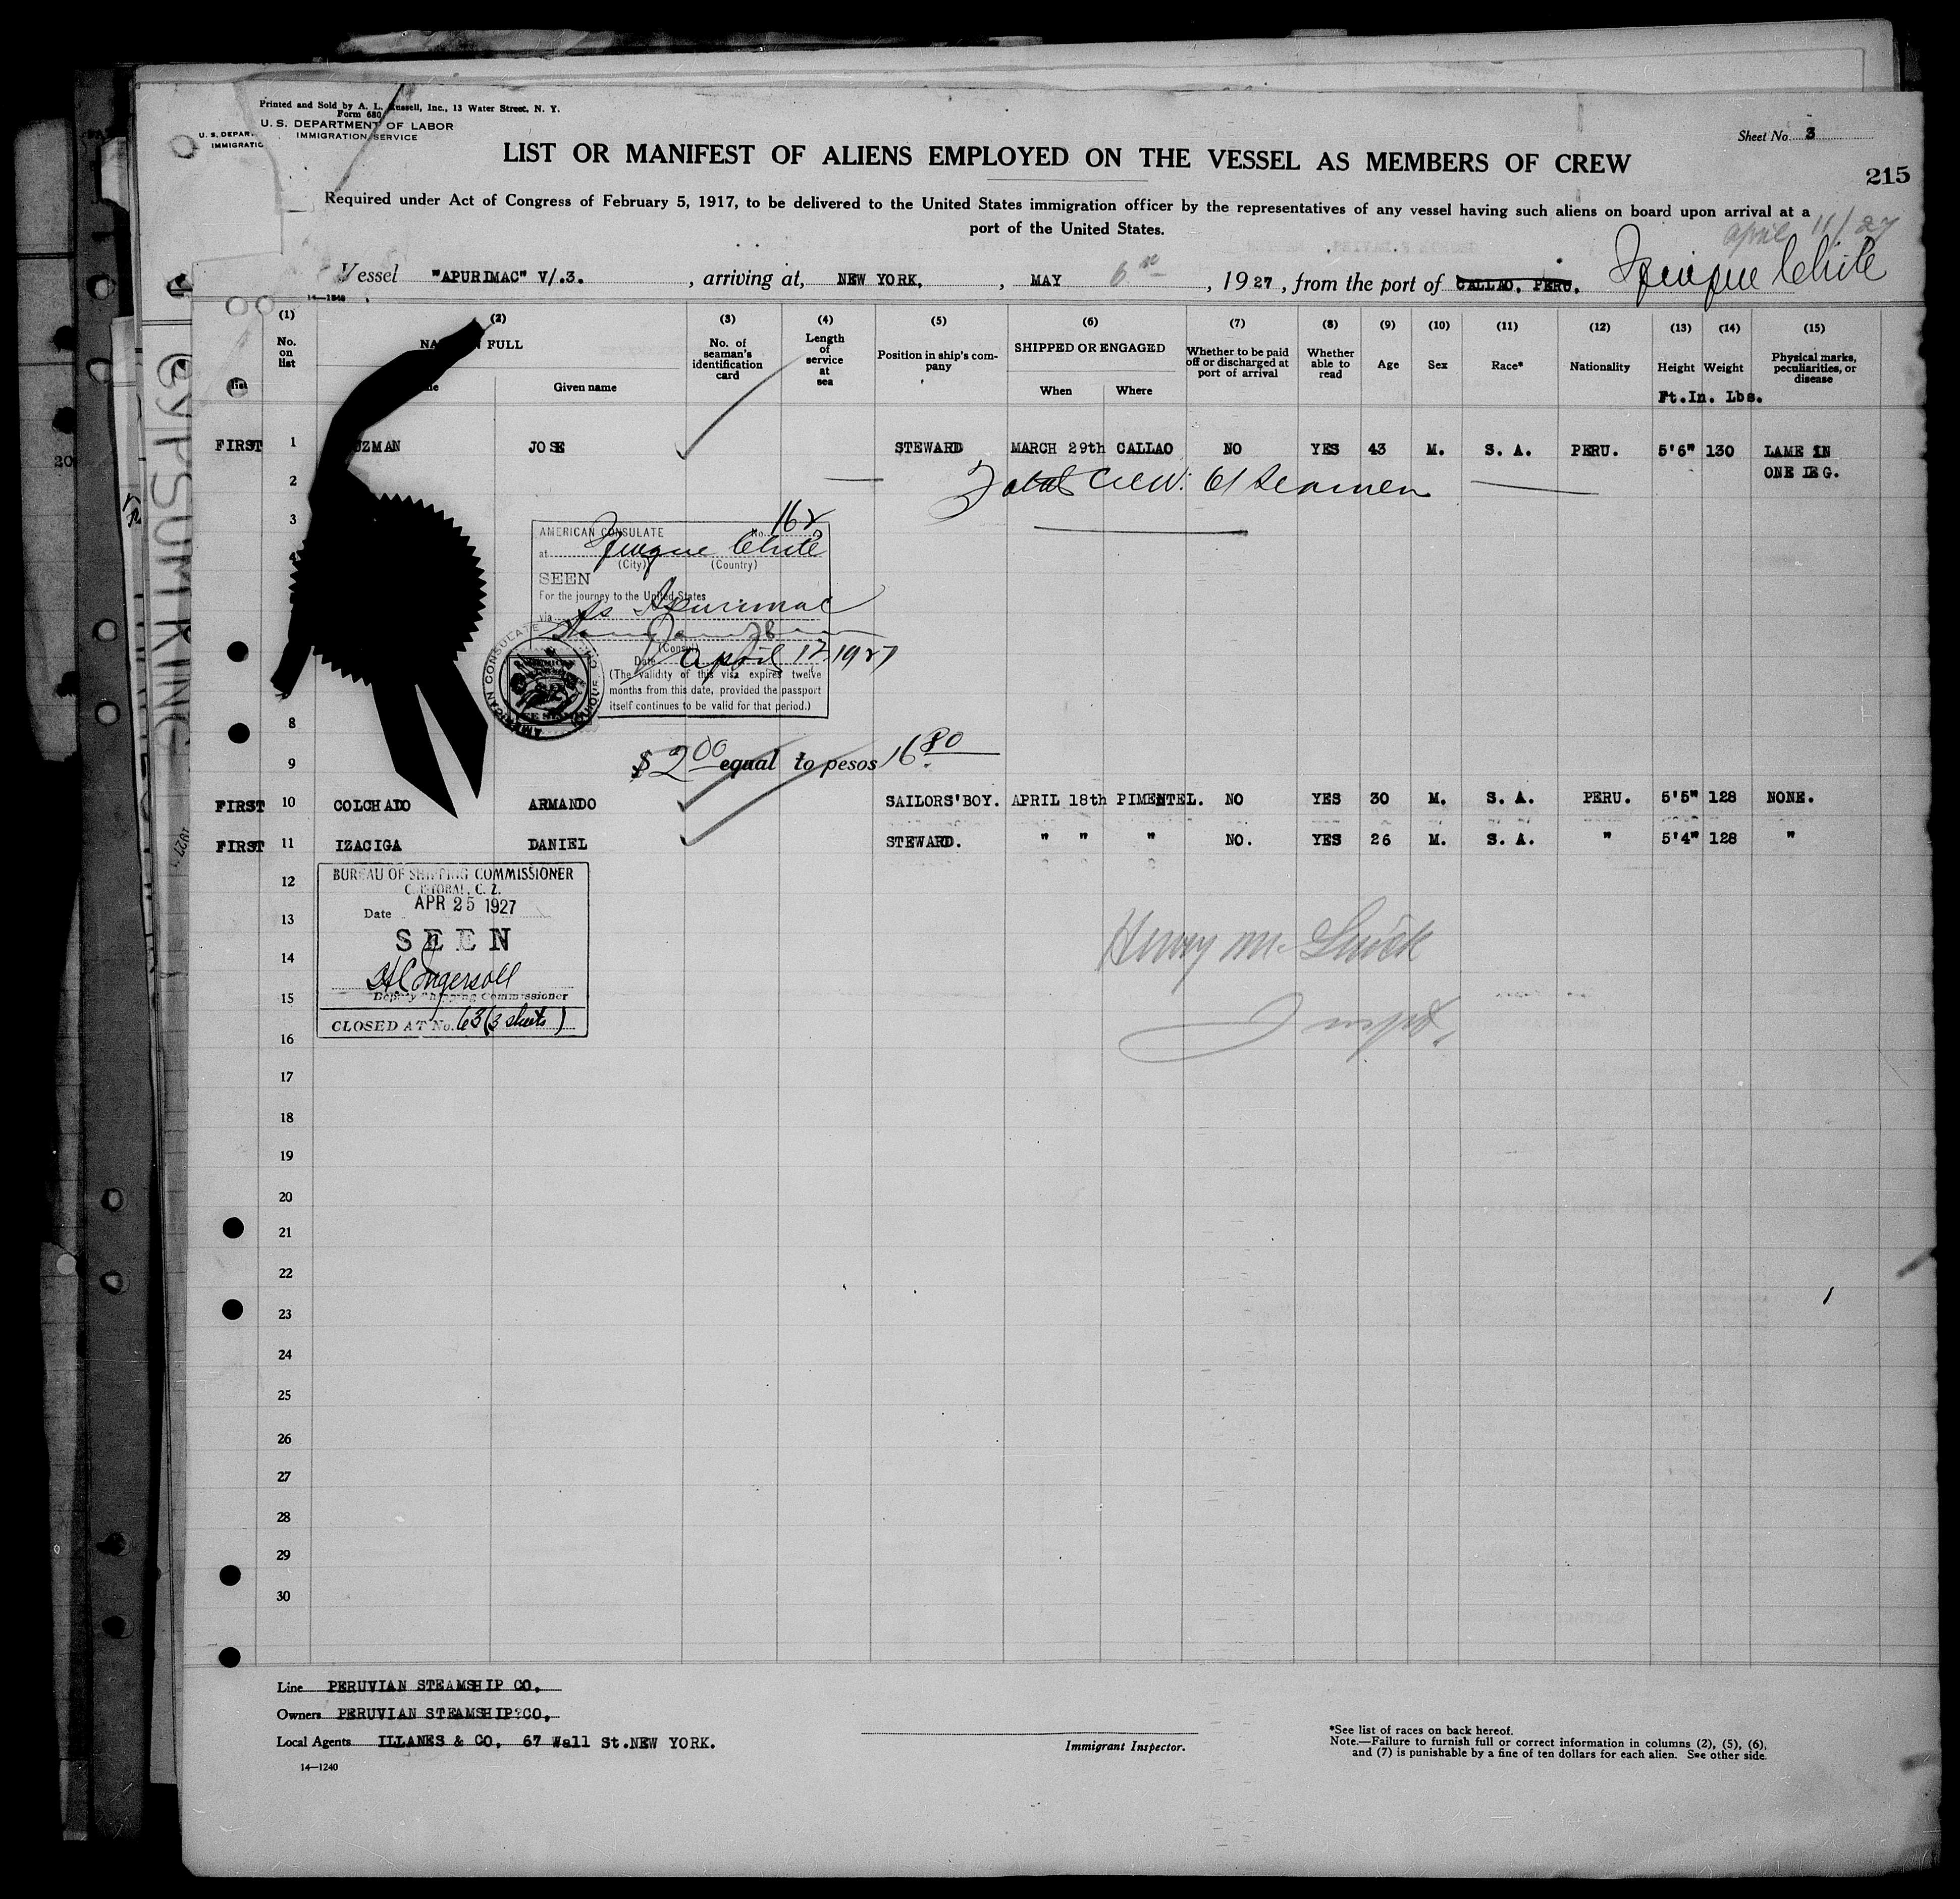 Printed and Sold by A. L. Russell, Inc., 13 Water Street, N. Y.
Form 680
U. S. DEPARTMENT OF LABOR
IMMIGRATION SERVICE
U. S. DEPAR
IMMIGRATIC
Sheet No. 3
LIST OR MANIFEST OF ALIENS EMPLOYED ON THE VESSEL AS MEMBERS OF CREW
215
Required under Act of Congress of February 5, 1917, to be delivered to the United States immigration officer by the representatives of any vessel having such aliens on board upon arrival at a
port of the United States.
april 11/27
Vessel "APURIMAC" V/.3. , arriving at, NEW YORK, , MAY 6th , 1927, from the port of CALLAO, PERU. Iquique Chile
14—1240
(1) (2) (3) (4) (5) (6) (7) (8) (9) (10) (11) (12) (13) (14) (15)
No. on list NA N FULL No. of seaman's identification card Length of service at sea Position in ship's company SHIPPED OR ENGAGED Whether to be paid off or discharged at port of arrival Whether able to read Age Sex Race* Nationality Height Weight Physical marks, peculiarities, or disease
list Given name When Where Ft.In. Lbs.
FIRST 1 UZMAN JOSE STEWARD MARCH 29th CALLAO NO YES 43 M. S. A. PERU. 5'6" 130 LAME IN
ONE LEG.
2 Total Crew: 61 Seamen
3
AMERICAN CONSULATE No. 162
at Iquique Chile
(City) (Country)
SEEN
For the journey to the United States
via Ss Apurimac
(Consul)
Date April 12 1927
(The validity of this visa expires twelve
months from this date, provided the passport
itself continues to be valid for that period.)
AMERICAN CONSULATE IQUIQUE
8
9 $2 00 equal to pesos 16 80
FIRST 10 COLCHADO ARMANDO SAILORS'BOY. APRIL 18th PIMENTEL. NO YES 30 M. S. A. PERU. 5'5" 128 NONE.
FIRST 11 IZACIGA DANIEL STEWARD. " " " NO. YES 26 M. S. A. " 5'4" 128 "
12
BUREAU OF SHIPPING COMMISSIONER
CRISTOBAL, C. Z.
Date APR 25 1927
SEEN
H C Ingersoll
Deputy Shipping Commissioner
CLOSED AT No. 63 (3 sheets)
13
14
15
16
Henry Mc
Inspt.
17
18
19
20
21
22
23
24
25
26
27
28
29
30
Line PERUVIAN STEAMSHIP CO,
Owners PERUVIAN STEAMSHIP CO,
Local Agents ILLANES & CO, 67 Wall St.NEW YORK.
14—1240
Immigrant Inspector.
*See list of races on back hereof.
Note.—Failure to furnish full or correct information in columns (2), (5), (6),
and (7) is punishable by a fine of ten dollars for each alien. See other side.
GYPSUM KING